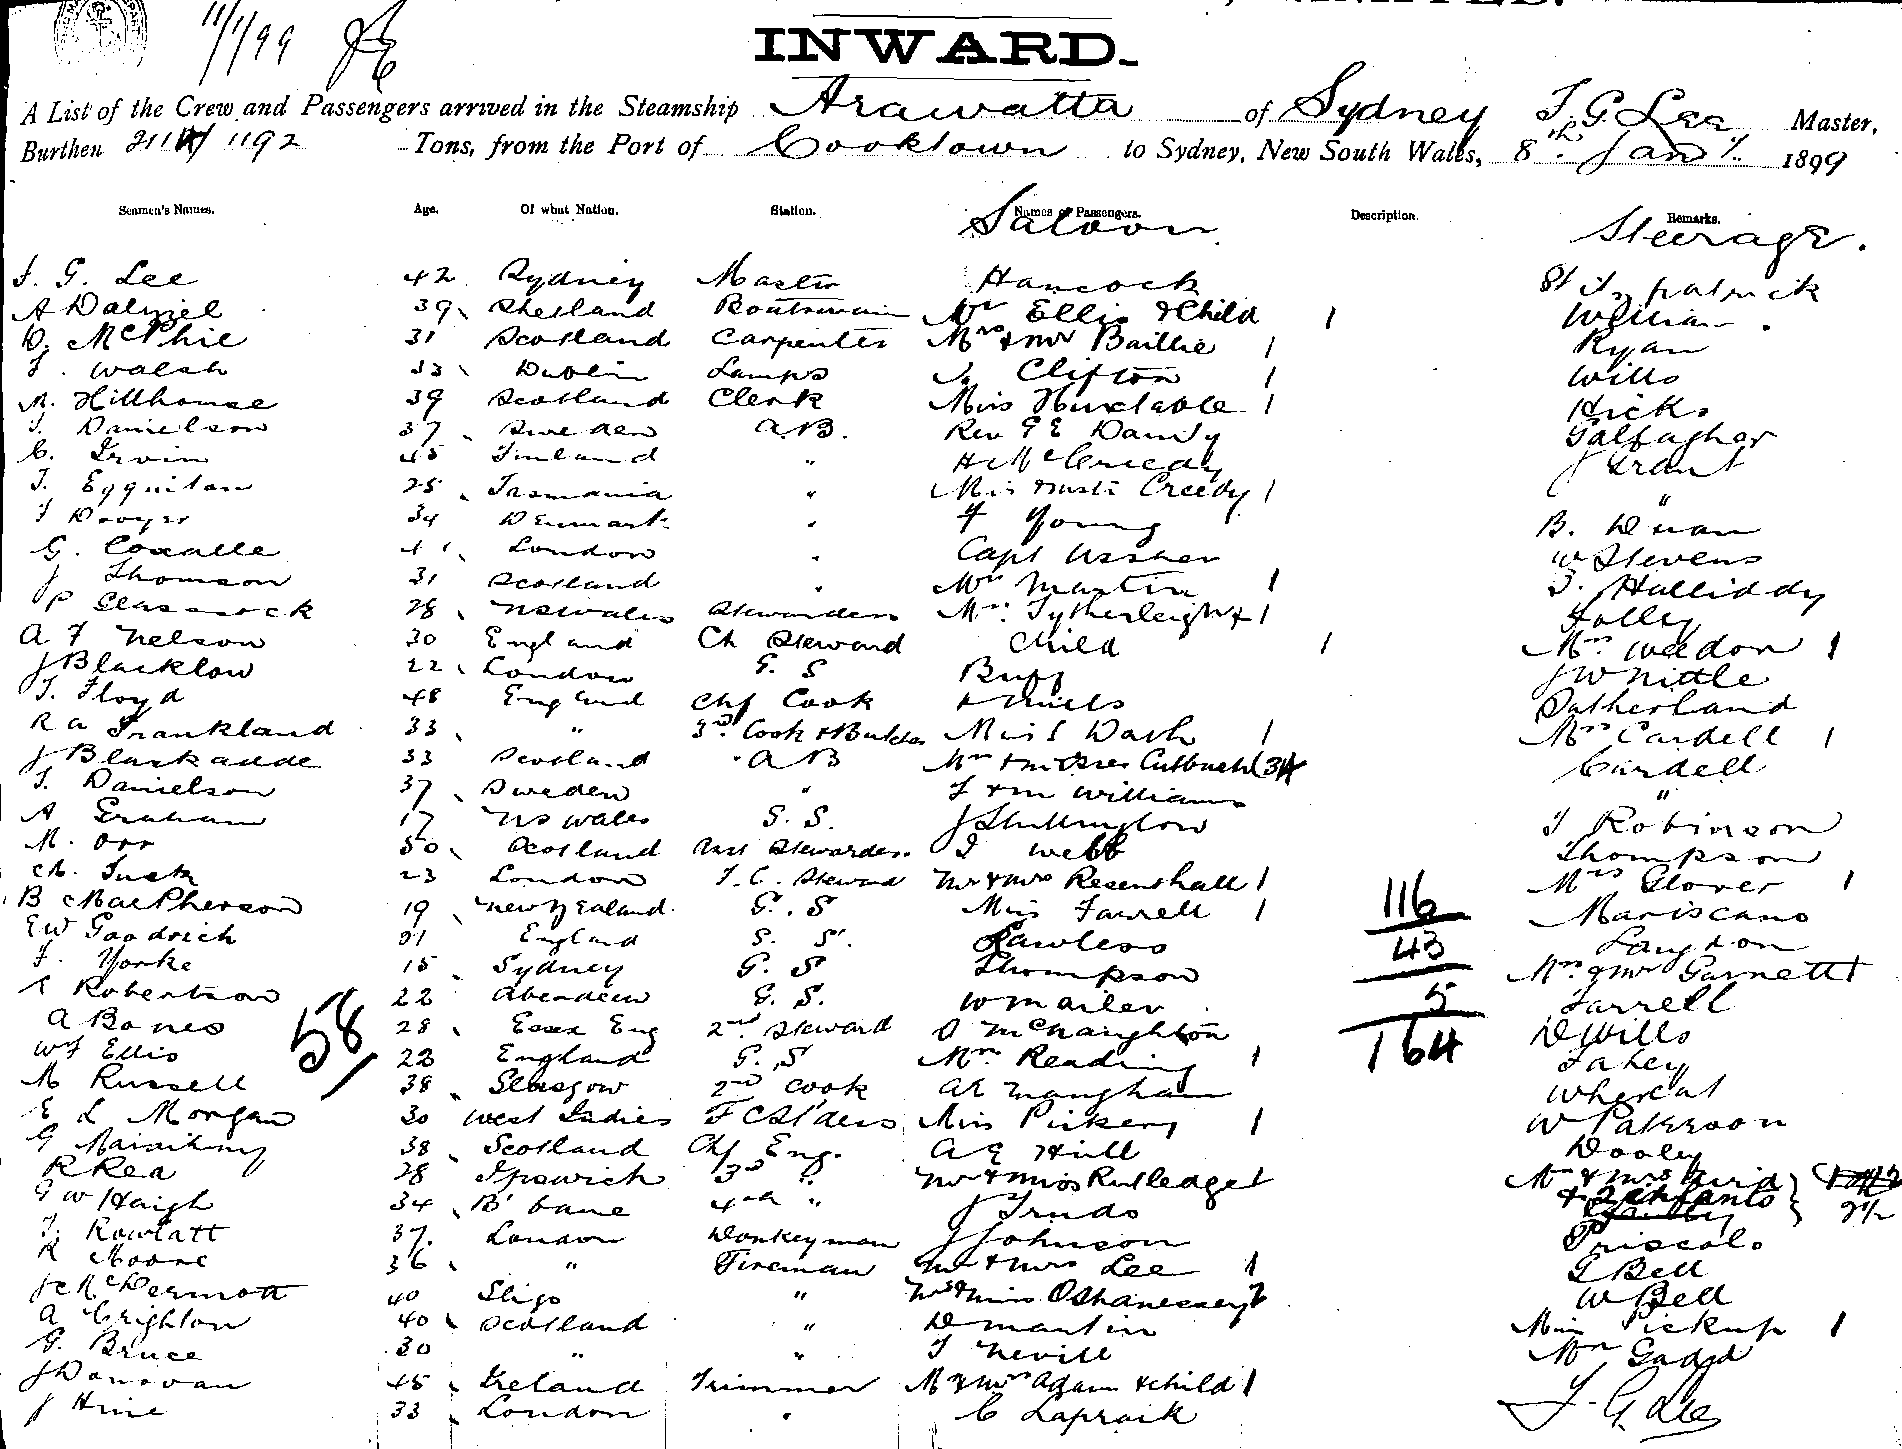 11/1/99
INWARD.
A List of the Crew and Passengers arrived in the Steamship Arawatta of Sydney T. G. Lee Master,
Burthen 1192 Tons, from the Port of Cooktown to Sydney, New South Wales, 8th Jany. 1899
Seamen's Names. Age. Of what Nation. Station. Names of Passengers. Description. Remarks.
Saloon Steerage.
T. G. Lee 42 Sydney Master Hancock
A Dalziel 39 Shetland Boatswain Mrs Ellis & Child 1 William
D. McPhie 31 Scotland Carpenter Mrs & Mr Baillie 1 Ryan
T. Walsh 33 Dublin Lamps Clifton 1 Wills
M. Hillhouse 39 Scotland Clerk Miss Huxtable 1 Hicks
T. Danielson 37 Sweden A.B. Rev G E Gallagher
C. Irvin 45 Finland " H McCreedy J Grant
T. 25 Tasmania " Creedy 1 "
T Dwyer 34 Denmark " F Young B. Duan
G. Coxalle London " Capt Ussher W Stevens
J Thomson 31 Scotland " Mrs Martin 1 T. Halliday
P Glasscock 28 NSWales Stewardess Mrs. Tytherleigh & 1 Folley
A F Nelson 30 England Ch Steward Child 1 Mrs Weedon 1
J Blacklow 22 London G. S J Whittle
T. Floyd 48 England Chf Cook Sutherland
R A Frankland 33 " 3rd Cook & Butcher Miss Dash 1 Mrs Cardell 1
J 33 Scotland A B Mrs & Misses Cutbush Cardell
T. Danielson 37 Sweden " J & M Williams "
A Graham 17 NS Wales S. S. J Shillinglow T Robinson
M. Orr 50 Scotland Asst Stewardess I Webb Thompson
Ch. Tuck 23 London T.C. Steward Mr & Mrs Rosenthall 1 Mrs Glover 1
B MacPherson 19 New Zealand. G. S Miss Farrell 1 116 Mariscano
E W Goodrich 21 England S. S. Lawless 43 Langdon
F. Yorke 15 Sydney G. S Thompson Mrs & Mr Garnett 1
Robertson 22 Aberdeen G. S. W Mailer 5 Farrell
A Bones 58 28 Essex Eng 2nd Steward D McNaughton 164 D Wills
W J Ellis 22 England G. S Mrs Reading 1 Fahey
M Russell 38 Glasgow 2nd Cook A E Maugham Whereat
E L Morgan 30 West Indies F C St'dess Miss Pickery 1 W Paterson
G 38 Scotland Chf Eng. A E Hill Dooley
R Rea 28 Ipswich 3rd " Mr & Miss Rutledge 1
G W Haigh 34 B'bane 4th " J & 2 infants
T. Rowlatt 37. London Donkeyman J Johnson
R Moore 36 " Fireman Mr & Mrs Lee 1 G Bell
J McDermott 40 Sligo " Oshanessey W Bell
A Crighton 40 Scotland " D Martin Miss Pickup 1
G. Bruce 30 " " T Nevill
J Donovan 45 Ireland Trimmer Mr & Mrs Adam & child 1
J Hine 33 London " C Lapraik T. G Lee